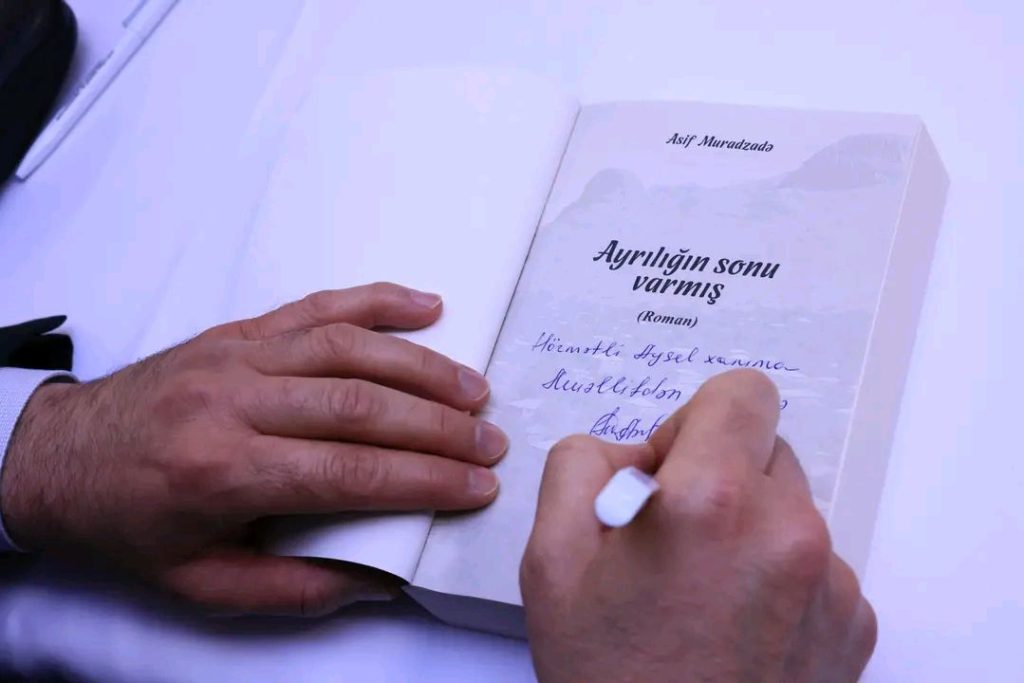 Asif Muradzadə
Ayrılığın sonu
varmış
(Roman)
Hörmətli Aysel xanıma
Müəllifdən